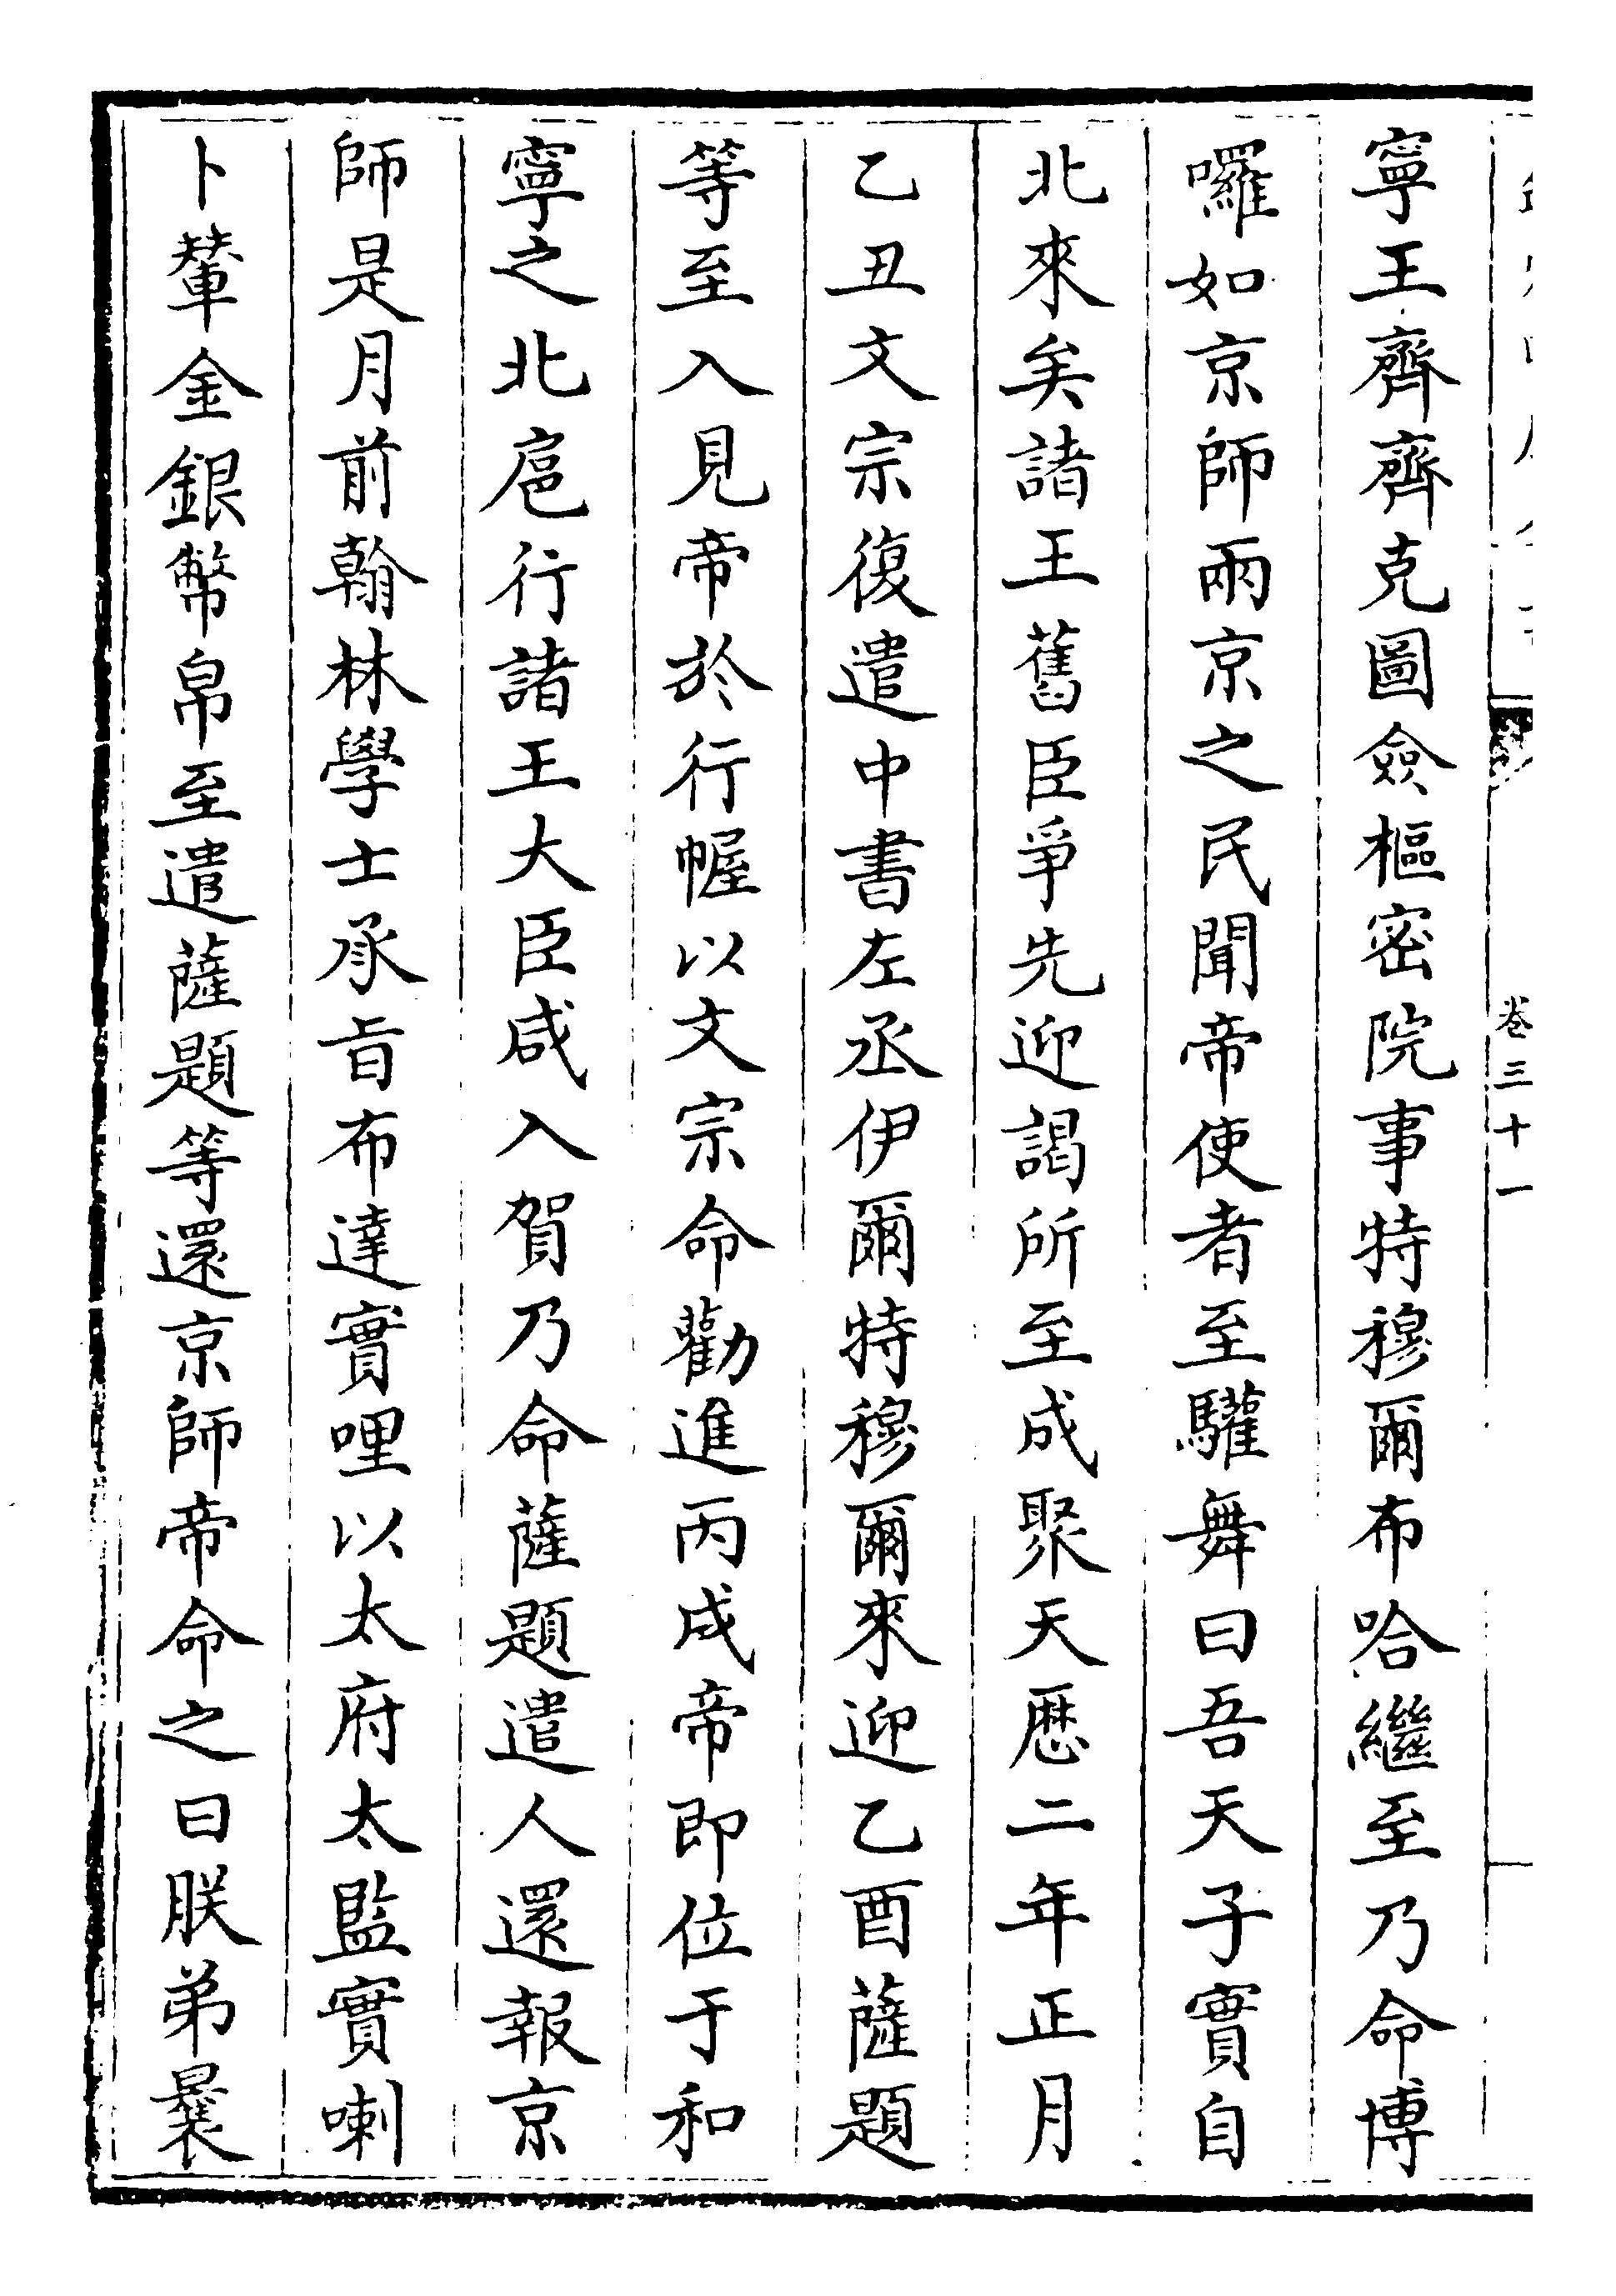 卷三十一
寧王齊齊克圖僉樞密院事特穆爾布哈繼至乃命博
囉如京師兩京之民聞帝使者至驩舞曰吾天子實自
北來矣諸王舊臣爭先迎謁所至成聚天厯二年正月
乙丑文宗復遣中書左丞伊爾特穆爾來迎乙酉薩題
等至入見帝於行幄以文宗命勸進丙戌帝即位于和
寧之北扈行諸王大臣咸入賀乃命薩題遣人還報京
師是月前翰林學士承旨布達實哩以太府太監實喇
卜輦金銀幣帛至遣薩題等還京師帝命之曰朕弟曩